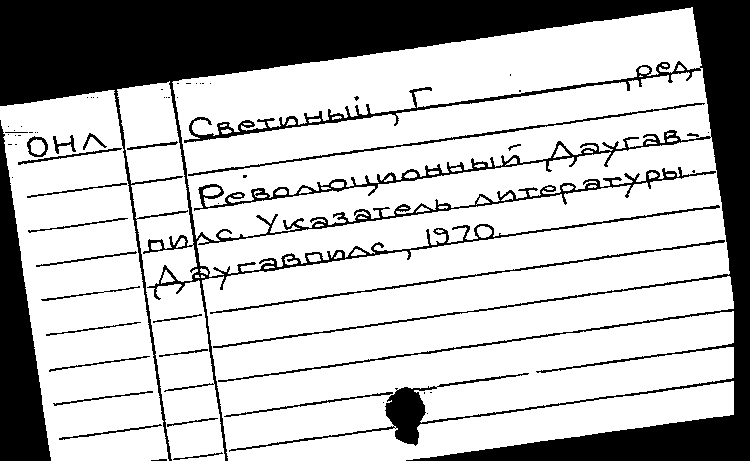 ОНЛ
Светиный, Г , ред.
Революционный Даугав-
пилс. Указатель литературы.
Даугавпилс, 1970.